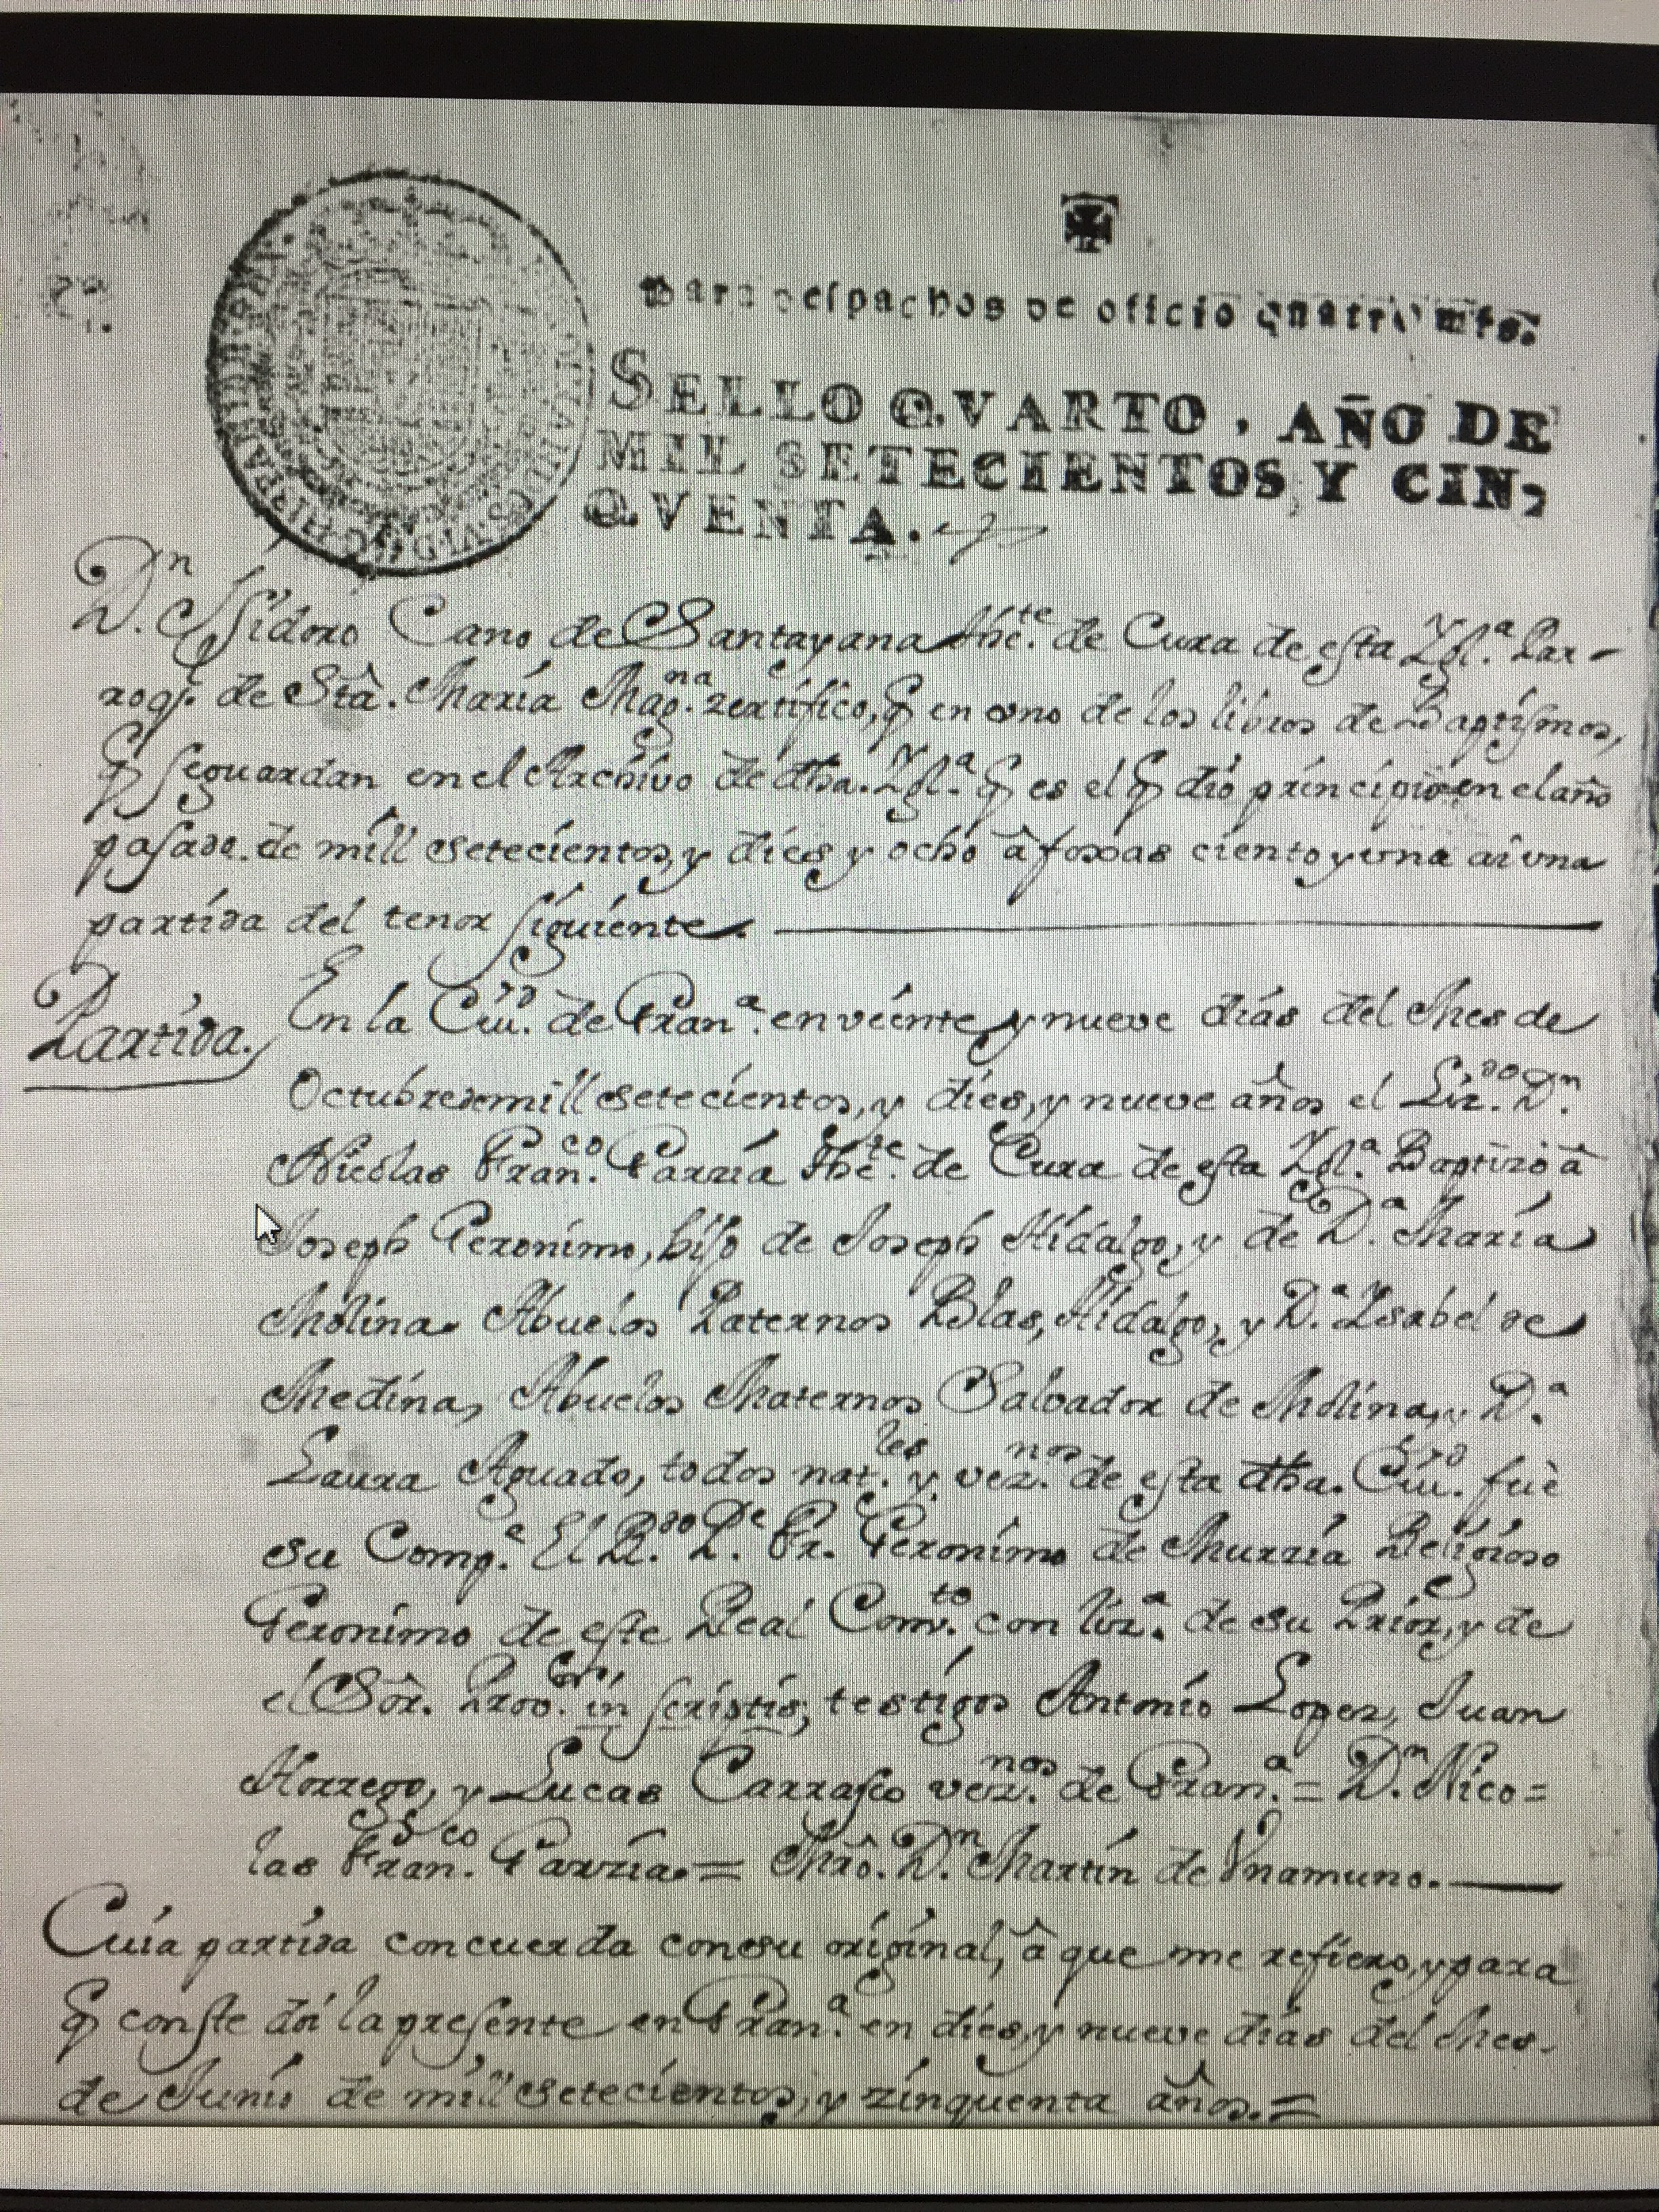 Para despachos de oficio quatro mrs.
SELLO QVARTO, AÑO DE
MIL SETECIENTOS Y CIN,
QVENTA.
Dn. Isidoro Cano de Santayana thete. de Cura de esta Yglª. Par-
roql. de Sta. María Magna. zertifico, q en uno de los libros de Baptismos,
q se guardan en el Archivo de dha. Yglª. q es el q dió principio en el año
pasado. de mill setecientos, y dies y ocho â foxas ciento y una ai una
partida del tenor siguiente
Partida.
En la Ciud. de Granª. en veinte y nueve días del Mes de
Octubre de mill setecientos, y dies, y nueve años el Lizdo. Dn.
Nicolas Franco. Garzía thete. de Cura de esta Yglª. Baptizó â
Joseph Geronimo, hijo de Joseph Hidalgo, y de Dª. María
Molina. Abuelos Paternos Blas, Hidalgo, y Dª. Ysabel de
Medina, Abuelos Maternos Salvador de Molina, y Dª.
Laura Aguado, todos natles. y veznos. de esta dha. Ciud. fuè
su Compe. El Rdo. Pe. Fr. Geronimo de Murzia Religioso
Geronimo de este Real Convto. con lizª. de su Prior, y de
el Sôr. Provor. in scriptis, testigos Antonio Lopez, Juan
Horrego, y Lucas Carrasco veznos. de Granª. = Dn. Nico=
las Franco. Garzía. = Mrô. Dn. Martín de Vnamuno.
Cuia partida concuerda con su original, â que me refiero, y para
q conste doi la presente en Granª. en dies, y nueve días del Mes.
de Junio de mill setecientos, y zinquenta años. =